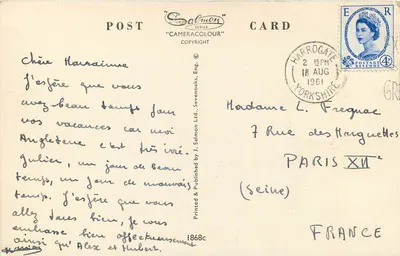 POST CARD
Salmon
SERIES
"CAMERACOLOUR"
COPYRIGHT
E R
POSTAGE
REVENUE
4D
HARROGATE
2 15PM
18 AUG
1961
YORKSHIRE
Chère Marraine
J'espère que vous
avez beau temps pour
vos vacances car moi
Angleterre c'est très irré-
gulier, un jour de beau
temps, un jour de mauvais
temps. J'espère que vous
allez tous bien, je vous
embrasse bien affectueusement
ainsi qu'Alex et Hubert.
Printed & Published by J. Salmon Ltd., Sevenoaks, Eng. ©
1868c
Madame L. Fregnac
7 Rue des Marguettes
PARIS XIIe
(Seine)
FRANCE